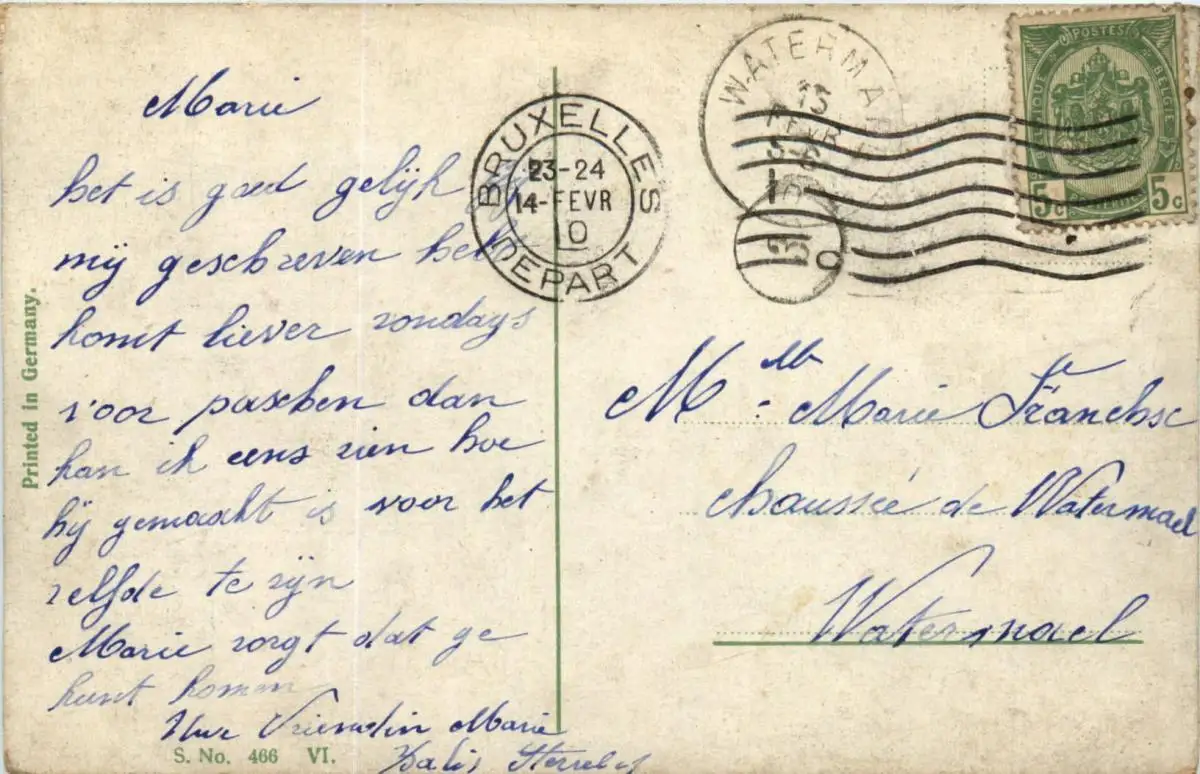 Marie
het is goed gelijk g
mij geschreven heb
komt liever zondags
voor paschen dan
kan ik eens zien hoe
hij gemaakt is voor het
zelfde te zijn
Marie zorgt dat ge
kunt komm
Uwe Vriendin Marie
Printed in Germany.
S. No. 466 VI.
BRUXELLES
23-24
14-FEVR
10
DEPART
WATERMA
15
FEVR
POSTES
BELGIE
5c 5c
Mlle Marie
chaussée de Watermael
Watermael